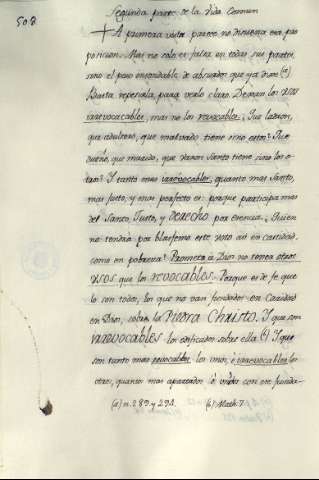 508
Segunda parte de la Vida Comun
A primera vista parece no disuena esa pro
posicion. Mas no solo es falsa en todas sus partes,
sino el pozo insondable de absurdos que ya vimos (a)
Basta repetirla, para verlo claro. Dexan los usos
irrevocables, mas no los revocables. Que ladron,
que adultero, que malvado tiene sino estos? Que
dueño, que marido, que varon Santo tiene sino los o-
tros? Y tanto mas irrevocables, quanto mas Santo,
mas justo, y mas perfecto es: porque participa mas
del Santo, Justo, y derecho por esencia. Quien
no tendrá por blasfemo este voto asi en castidad,
como en pobreza? Prometo à Dios no tener otros
usos que los revocables. Porque es de fe que
lo son todos, los que no van fundados en Caridad
en Dios, sobre la Piedra Christo. Y que son
irrevocables los edificados sobre ella (b) Y que
son tanto mas revocables los unos, è irrevocables los
otros, quanto mas apartados ò unidos con ese funda-
(a) n. 289 y 291. (b) Math. 7.